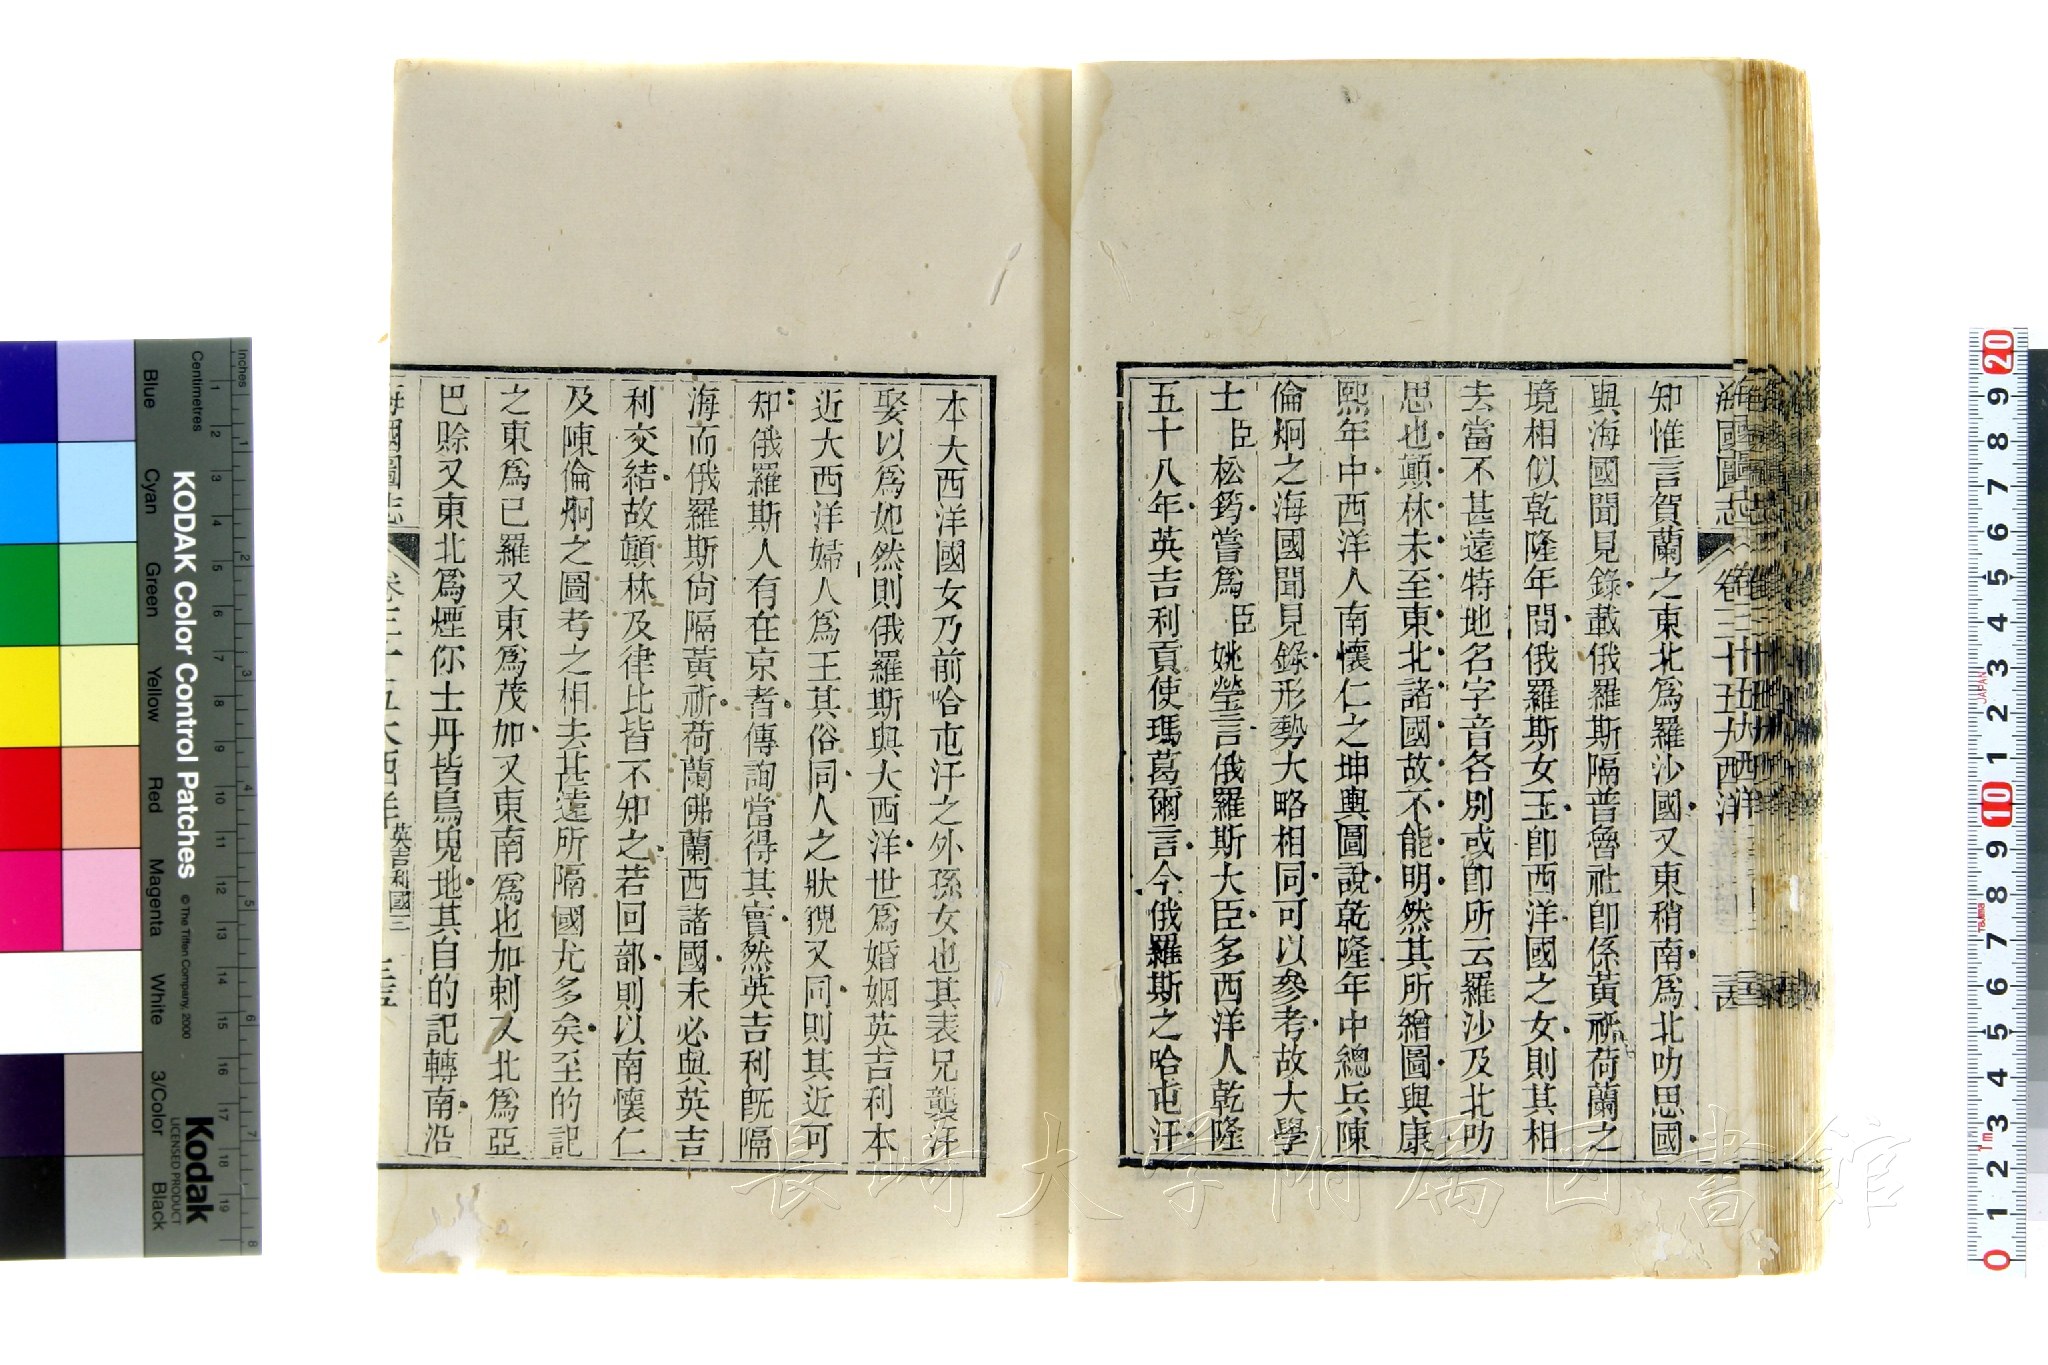 海國圖志
卷三十五 大西洋
知惟言賀蘭之東北爲羅沙國又東稍南爲北叻思國
與海國聞見錄載俄羅斯隔普魯社卽係黃祁荷蘭之
境相似乾隆年間俄羅斯女王卽西洋國之女則其相
去當不甚遠特地名字音各別或卽所云羅沙及北叻
思也顛林未至東北諸國故不能明然其所繪圖與康
熙年中西洋人南懷仁之坤輿圖說乾隆年中總兵陳
倫炯之海國聞見錄形勢大略相同可以參考故大學
士臣松筠嘗爲臣姚瑩言俄羅斯大臣多西洋人乾隆
五十八年英吉利貢使瑪葛爾言今俄羅斯之哈屯汗
本大西洋國女乃前哈屯汗之外孫女也其表兄襲汗
娶以爲妃然則俄羅斯與大西洋世爲婚姻英吉利本
近大西洋婦人爲王其俗同人之狀貌又同則其近可
知俄羅斯人有在京者傳詢當得其實然英吉利旣隔
海而俄羅斯尙隔黃祈荷蘭佛蘭西諸國未必與英吉
利交結故顛林及律比皆不知之若回部則以南懷仁
及陳倫炯之圖考之相去甚遠所隔國尤多矣至的記
之東爲已羅又東爲茂加又東南爲也加剌又北爲亞
巴賒又東北爲煙你士丹皆烏鬼地其自的記轉南沿
海國圖志
卷三十五 大西洋 英吉利國三
三五
Blue
Cyan
Green
Yellow
Red
Magenta
White
3/Color
Black
KODAK Color Control Patches
© The Tiffen Company, 2000
Kodak
LICENSED PRODUCT
Inches
Centimetres
1 2 3 4 5 6 7 8 9 10 11 12 13 14 15 16 17 18 19
1 2 3 4 5 6 7 8
20 9 8 7 6 5 4 3 2 1 10 9 8 7 6 5 4 3 2 1 0
JAPAN
1m
長崎大学附属図書館